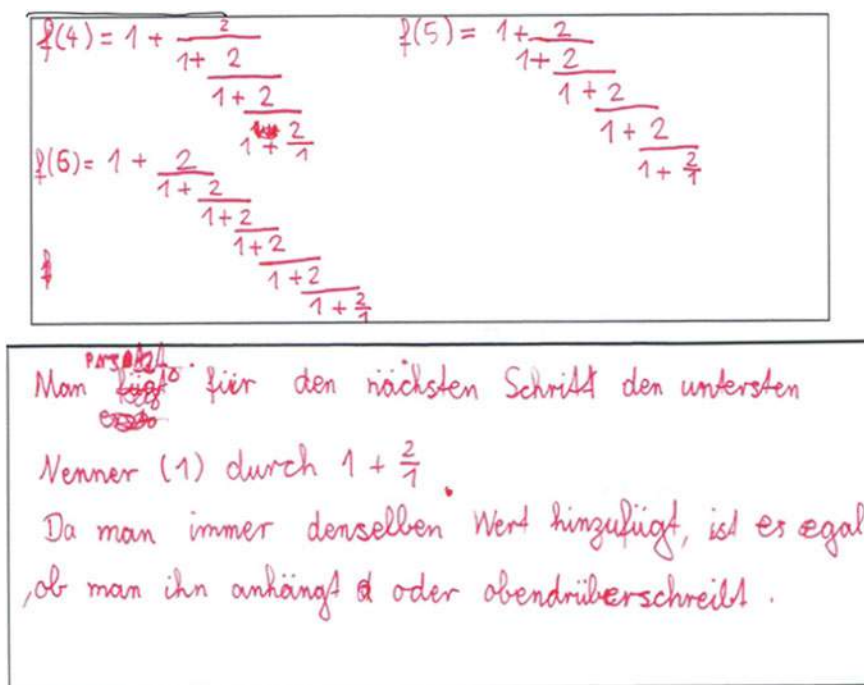 f(4) = 1 + 2
1 + 2
1 + 2
1 + 2/1
f(5) = 1 + 2
1 + 2
1 + 2
1 + 2
1 + 2/1
f(6) = 1 + 2
1 + 2
1 + 2
1 + 2
1 + 2
1 + 2/1
Man für den nächsten Schritt den untersten
Nenner (1) durch 1 + 2/1.
Da man immer denselben Wert hinzufügt, ist es egal
, ob man ihn anhängt oder obendrüberschreibt.